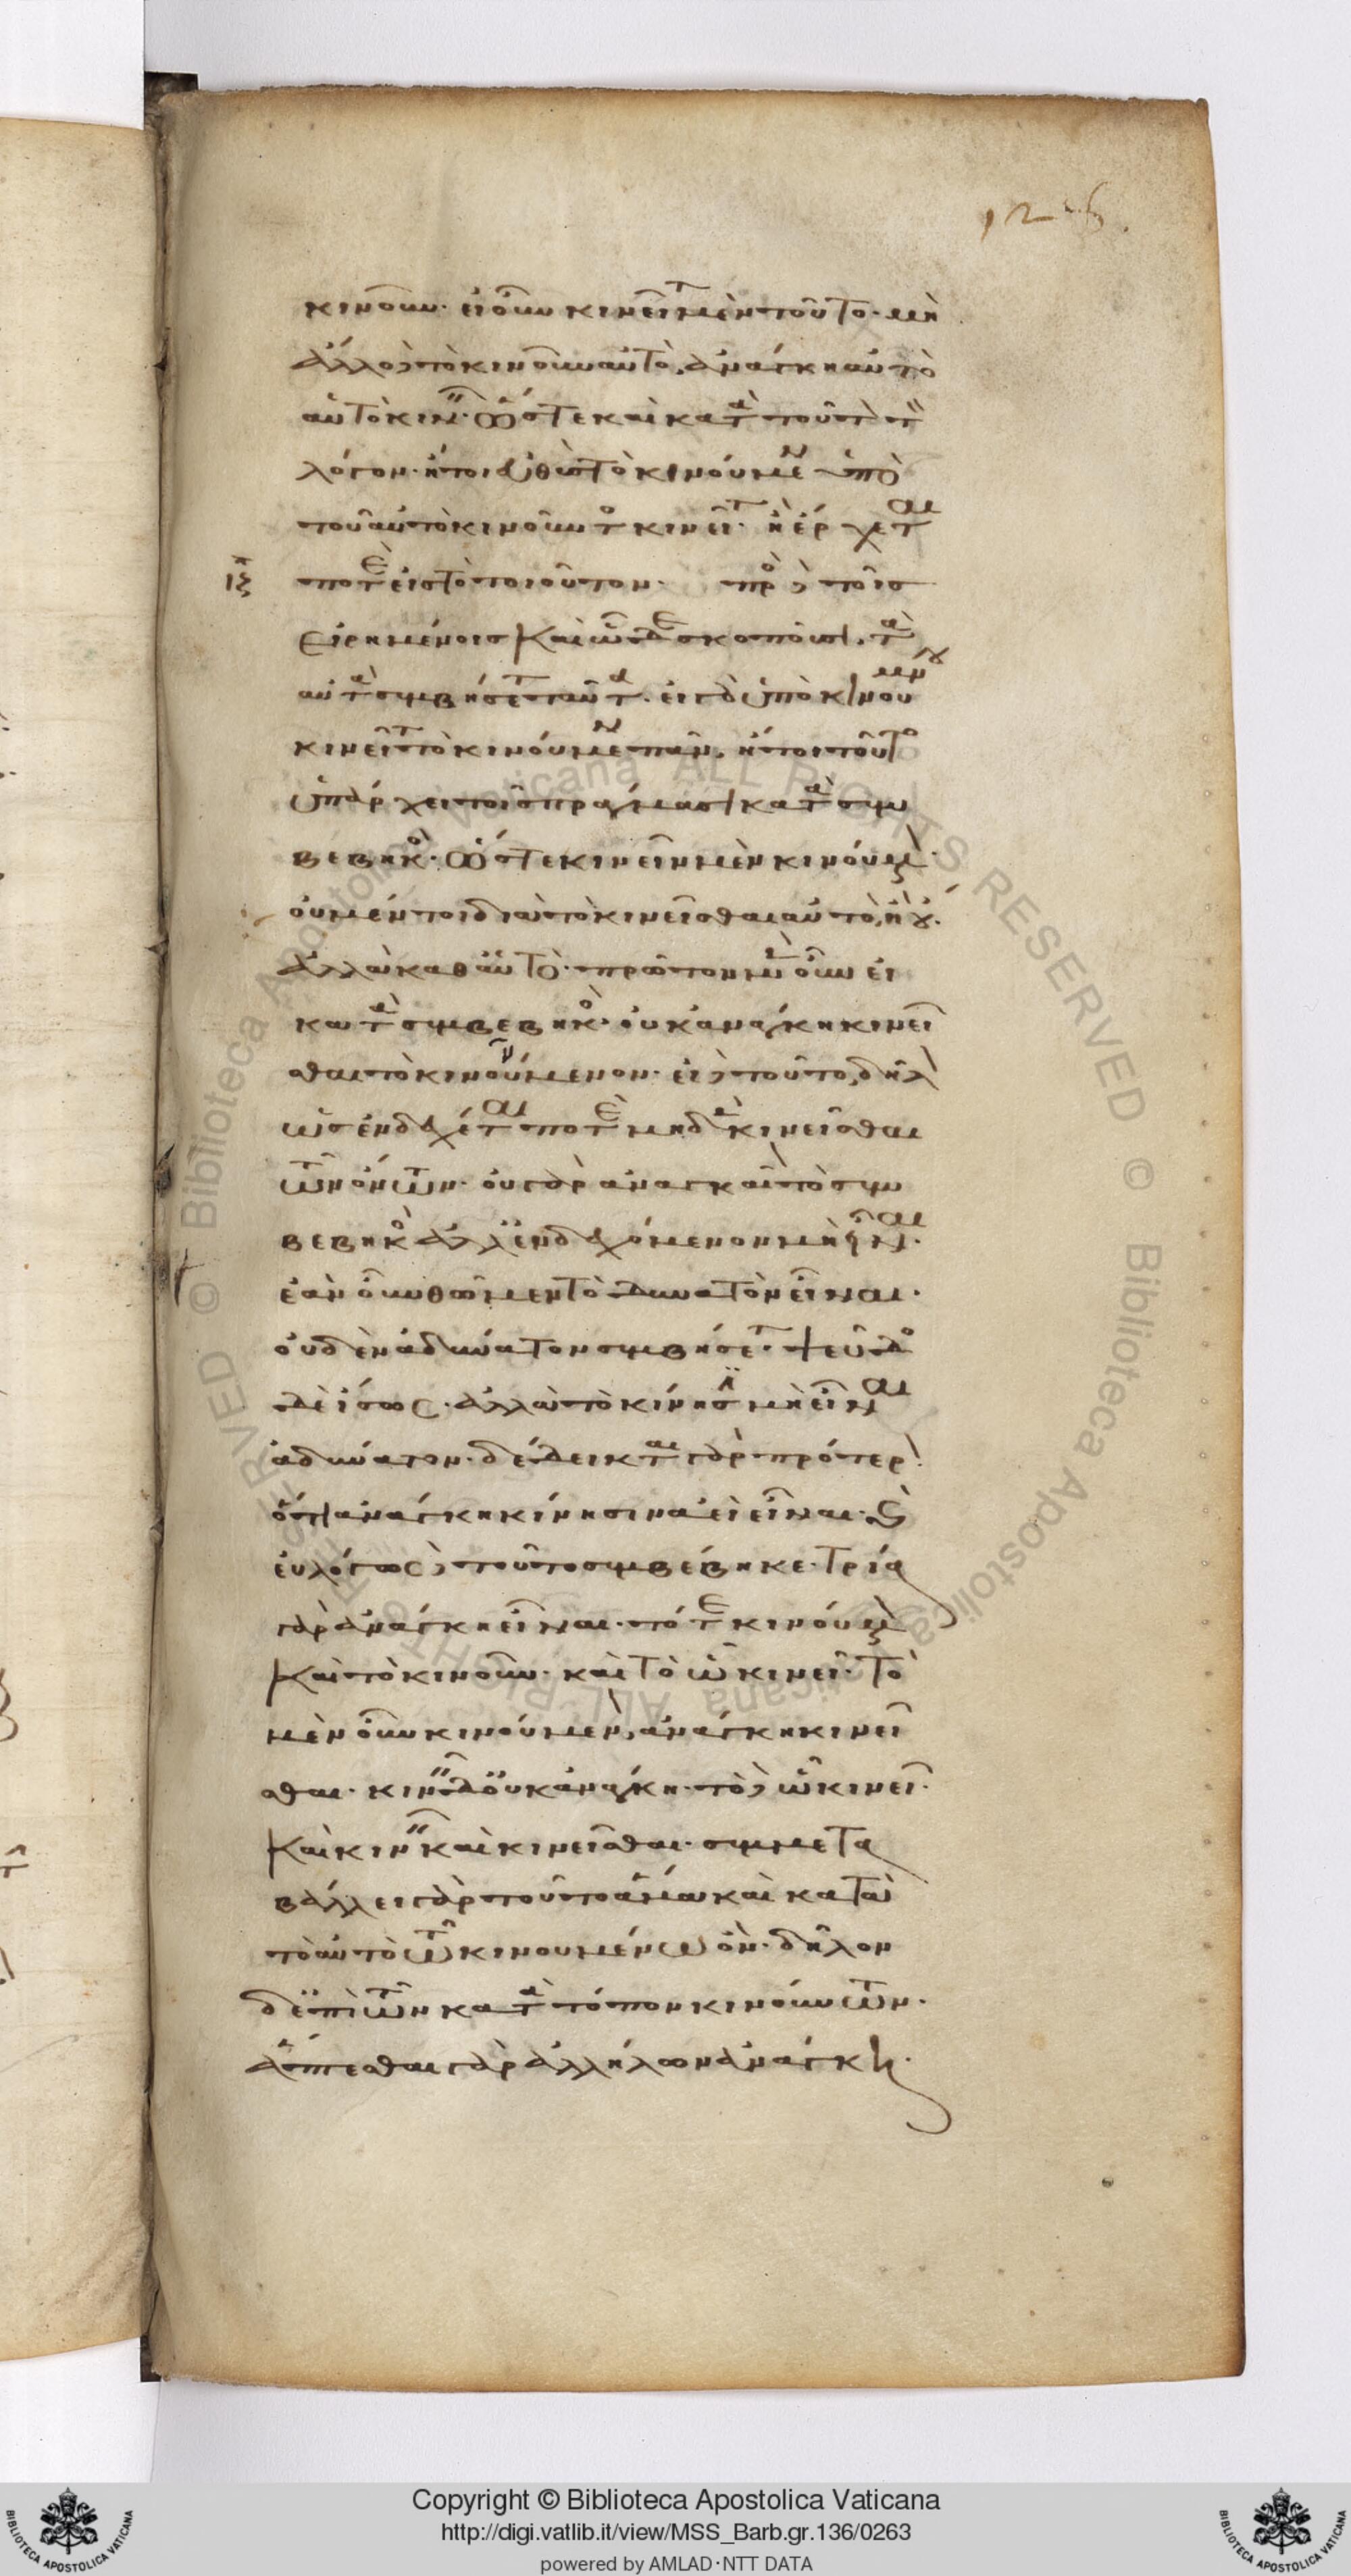 κινοῦν· εἰ οὖν κινεῖται μὲν τοῦτο· μὴ
ἄλλο δὲ τὸ κινοῦν αὐτὸ, ἀνάγκη αὐτὸ
αὐτὸ κινεῖν· ὥστε καὶ κατὰ τοῦτον τὸν
λόγον· ἤτοι εὐθὺς τὸ κινούμενον ὑπὸ
τοῦ αὐτὸ κινοῦντος κινεῖται· ἢ ἔρχεται
ποτὲ εἰς τὸ τοιοῦτον· πρὸς δὲ τοῖς
εἰρημένοις καὶ ὧδε σκοποῦσι, τὰ
αὐτὰ συμβήσεται ταῦτα· εἰ γὰρ ὑπὸ κινουμένου
κινεῖται τὸ κινούμενον πᾶν, ἤτοι τοῦτο
ὑπάρχει τοῖς πράγμασι κατὰ συμ
βεβηκὸς· ὥστε κινεῖν μὲν κινούμενον·
οὐ μέντοι διὰ τὸ κινεῖσθαι αὐτὸ, ἢ οὔ·
ἀλλὰ καθ αὑτὸ· πρῶτον μὲν οὖν εἰ
κατὰ συμβεβηκὸς· οὐκ ἀνάγκη κινεῖ
σθαι τὸ κινούμενον· εἰ δὲ τοῦτο, δῆλον
ὡς ἐνδέχεται ποτὲ μηδὲν κινεῖσθαι
τῶν ὄντων· οὐ γὰρ ἀναγκαῖον τὸ συμ
βεβηκὸς ἀλλ' ἐνδεχόμενον μὴ εἶναι·
ἐὰν οὖν θῶμεν τὸ δυνατὸν εἶναι·
οὐδὲν ἀδύνατον συμβήσεται· ψεῦδος
δὲ ἴσως· ἀλλὰ τὸ κίνησιν μὴ εἶναι
ἀδύνατον· δέδεικται γὰρ πρότερον
ὅτι ἀνάγκη κίνησιν ἀεὶ εἶναι· καὶ
εὐλόγως δὲ τοῦτο συμβέβηκε· τρία
γὰρ ἀνάγκη εἶναι· τό τε κινούμενον
καὶ τὸ κινοῦν· καὶ τὸ ὧ κινεῖ· τὸ
μὲν οὖν κινούμενον, ἀνάγκη κινεῖ
σθαι· κινεῖν δ' οὐκ ἀνάγκη· τὸ δὲ ὧ κινεῖ·
καὶ κινεῖν καὶ κινεῖσθαι· συμμετα
βάλλει γὰρ τοῦτο ἅμα καὶ κατὰ
τὸ αὐτὸ τῶ κινουμένω ὂν· δῆλον
δ' ἐπὶ τῶν κατὰ τόπον κινούντων·
ἅπτεσθαι γὰρ ἀλλήλων ἀνάγκη·
Copyright © Biblioteca Apostolica Vaticana
http://digi.vatlib.it/view/MSS_Barb.gr.136/0263
powered by AMLAD·NTT DATA